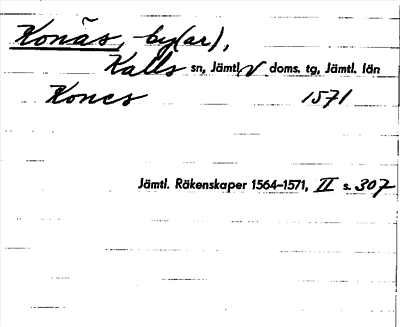 Konäs, by(ar),
Kalls sn, Jämtl. V doms. tg, Jämtl. län
Kones 1571
Jämtl. Räkenskaper 1564–1571, II s. 307